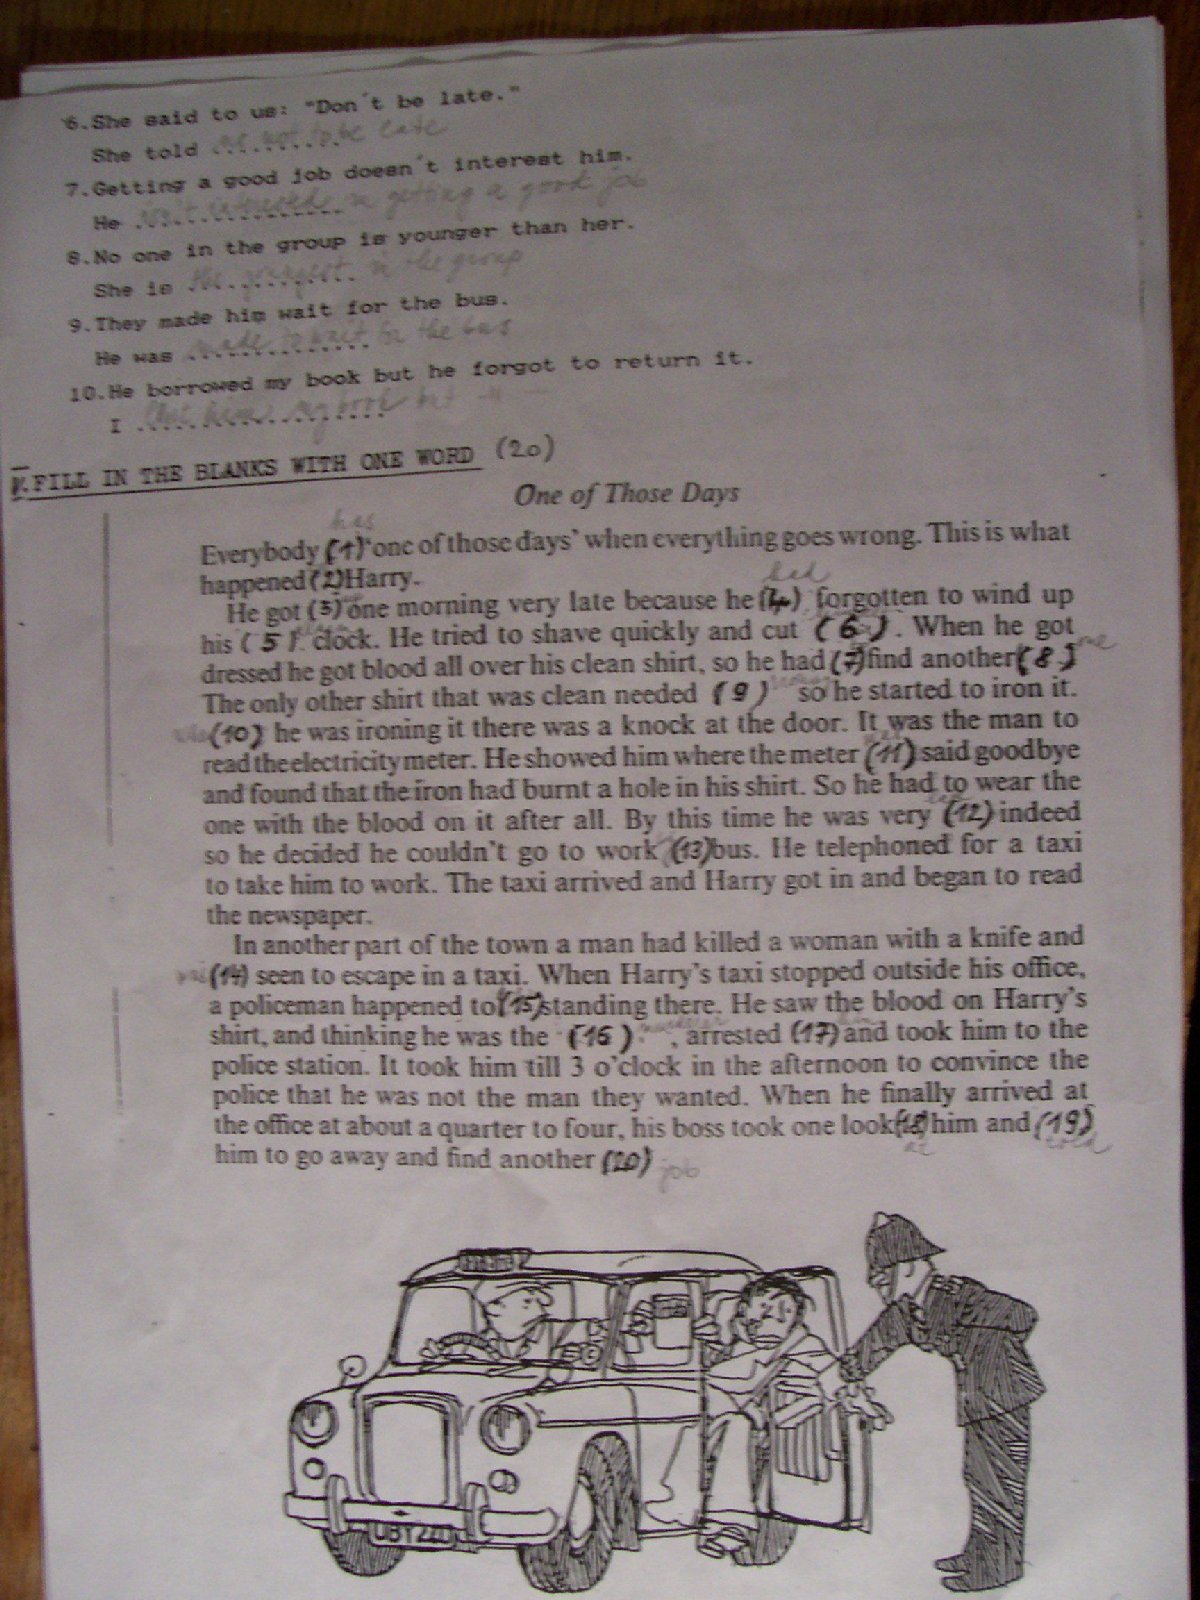 6.She said to us: "Don't be late."
She told ........... us not to be late
7.Getting a good job doesn't interest him.
He ............... isn't interested in getting a good job
8.No one in the group is younger than her.
She is ............ the youngest in the group
9.They made him wait for the bus.
He was ............... made to wait for the bus
10.He borrowed my book but he forgot to return it.
I .................. him my book but
V.FILL IN THE BLANKS WITH ONE WORD (20)
One of Those Days
has
Everybody (1) 'one of those days' when everything goes wrong. This is what
happened (2) Harry.
had
He got (3) one morning very late because he (4) forgotten to wind up
his (5) clock. He tried to shave quickly and cut (6). When he got
dressed he got blood all over his clean shirt, so he had (7) find another (8.) one
The only other shirt that was clean needed (9) so he started to iron it.
(10) he was ironing it there was a knock at the door. It was the man to
read the electricity meter. He showed him where the meter (11) said goodbye
and found that the iron had burnt a hole in his shirt. So he had to wear the
one with the blood on it after all. By this time he was very (12) indeed
so he decided he couldn't go to work (13) bus. He telephoned for a taxi
to take him to work. The taxi arrived and Harry got in and began to read
the newspaper.
In another part of the town a man had killed a woman with a knife and
(14) seen to escape in a taxi. When Harry's taxi stopped outside his office,
a policeman happened to (15) standing there. He saw the blood on Harry's
shirt, and thinking he was the (16) murderer, arrested (17) him and took him to the
police station. It took him till 3 o'clock in the afternoon to convince the
police that he was not the man they wanted. When he finally arrived at
the office at about a quarter to four, his boss took one look (18) him and (19)
at told
him to go away and find another (20) job